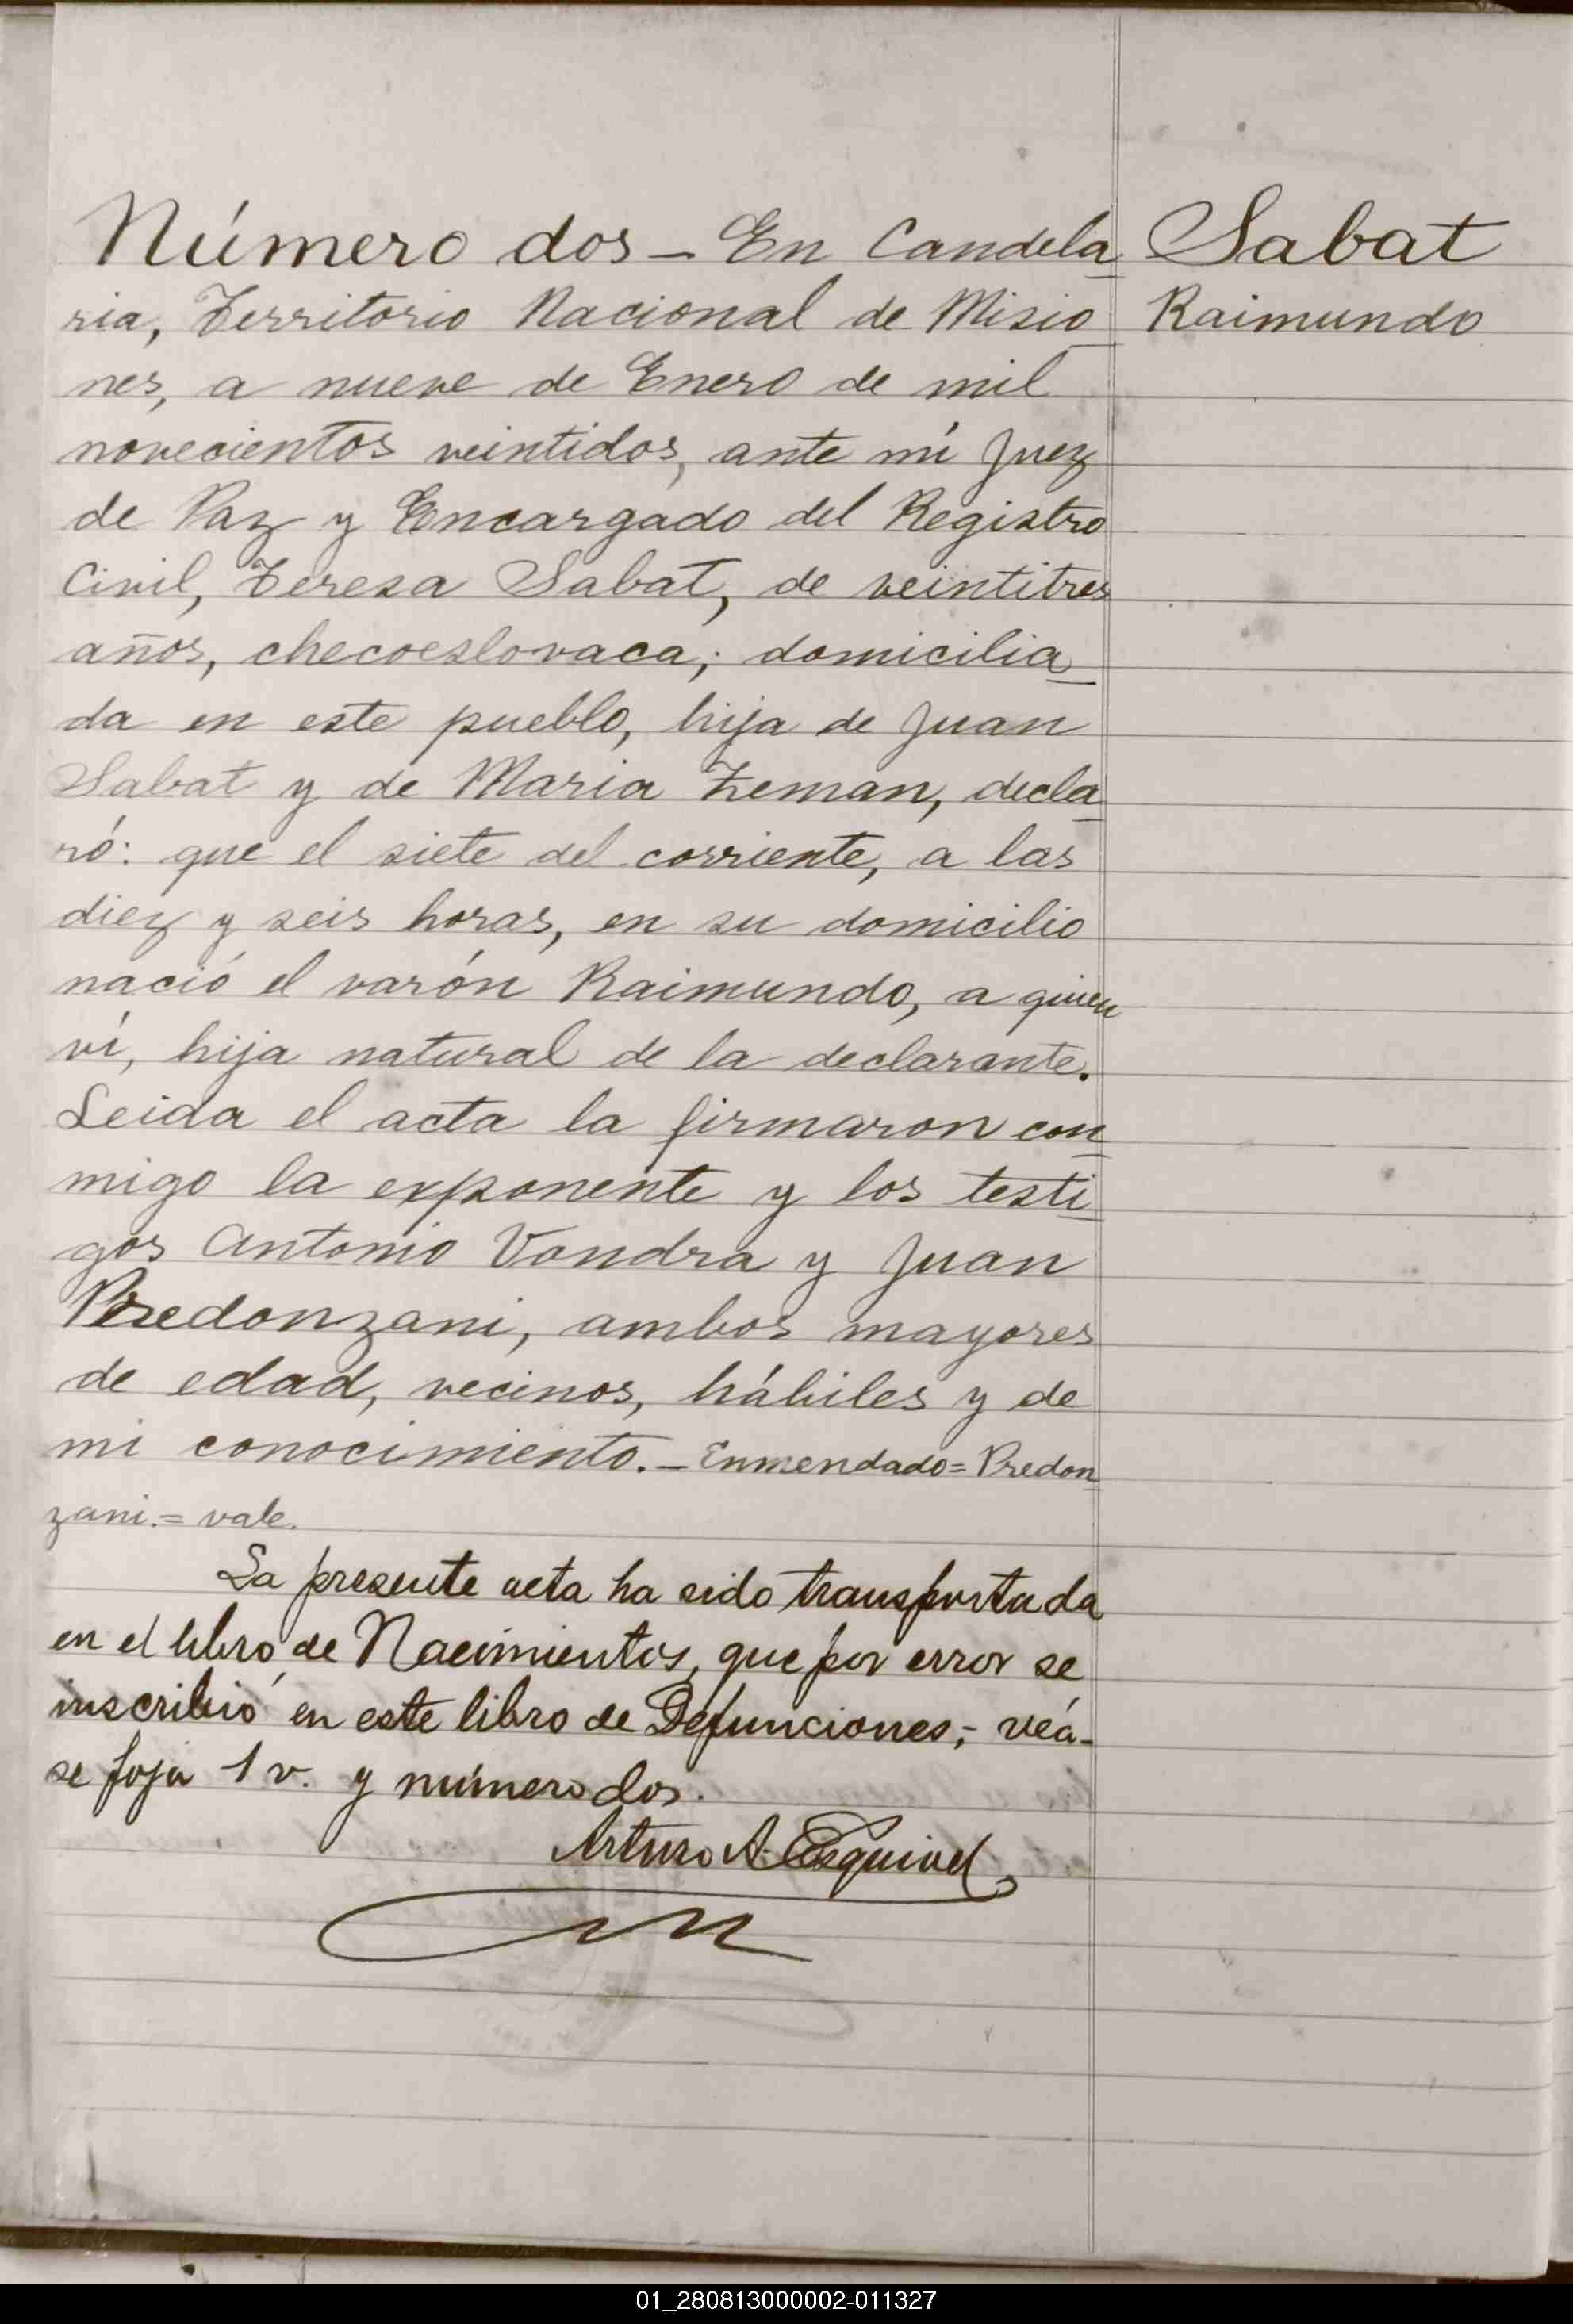 Número dos - En Candela
Sabat
ria, Territorio Nacional de Misio
Raimundo
nes, a nueve de Enero de mil
novecientos veintidos, ante mí Juez
de Paz y Encargado del Registro
Civil, Teresa Sabat, de veintitres
años, checoeslovaca; domicilia
da en este pueblo, hija de Juan
Sabat y de Maria Zeman, decla
ró: que el siete del corriente, a las
diez y seis horas, en su domicilio
nació el varón Raimundo, a quien
ví, hija natural de la declarante.
Leida el acta la firmaron con
migo la exponente y los testi
gos Antonio Vondra y Juan
Predonzani, ambos mayores
de edad, vecinos, hábiles y de
mi conocimiento. - Enmendado = Predon
zani. = vale.
La presente acta ha sido transportada
en el libro de Nacimientos, que por error se
inscribió en este libro de Defunciones; - veá-
se foja 1 v. y número dos.
Arturo A. Esquivel
01_280813000002-011327